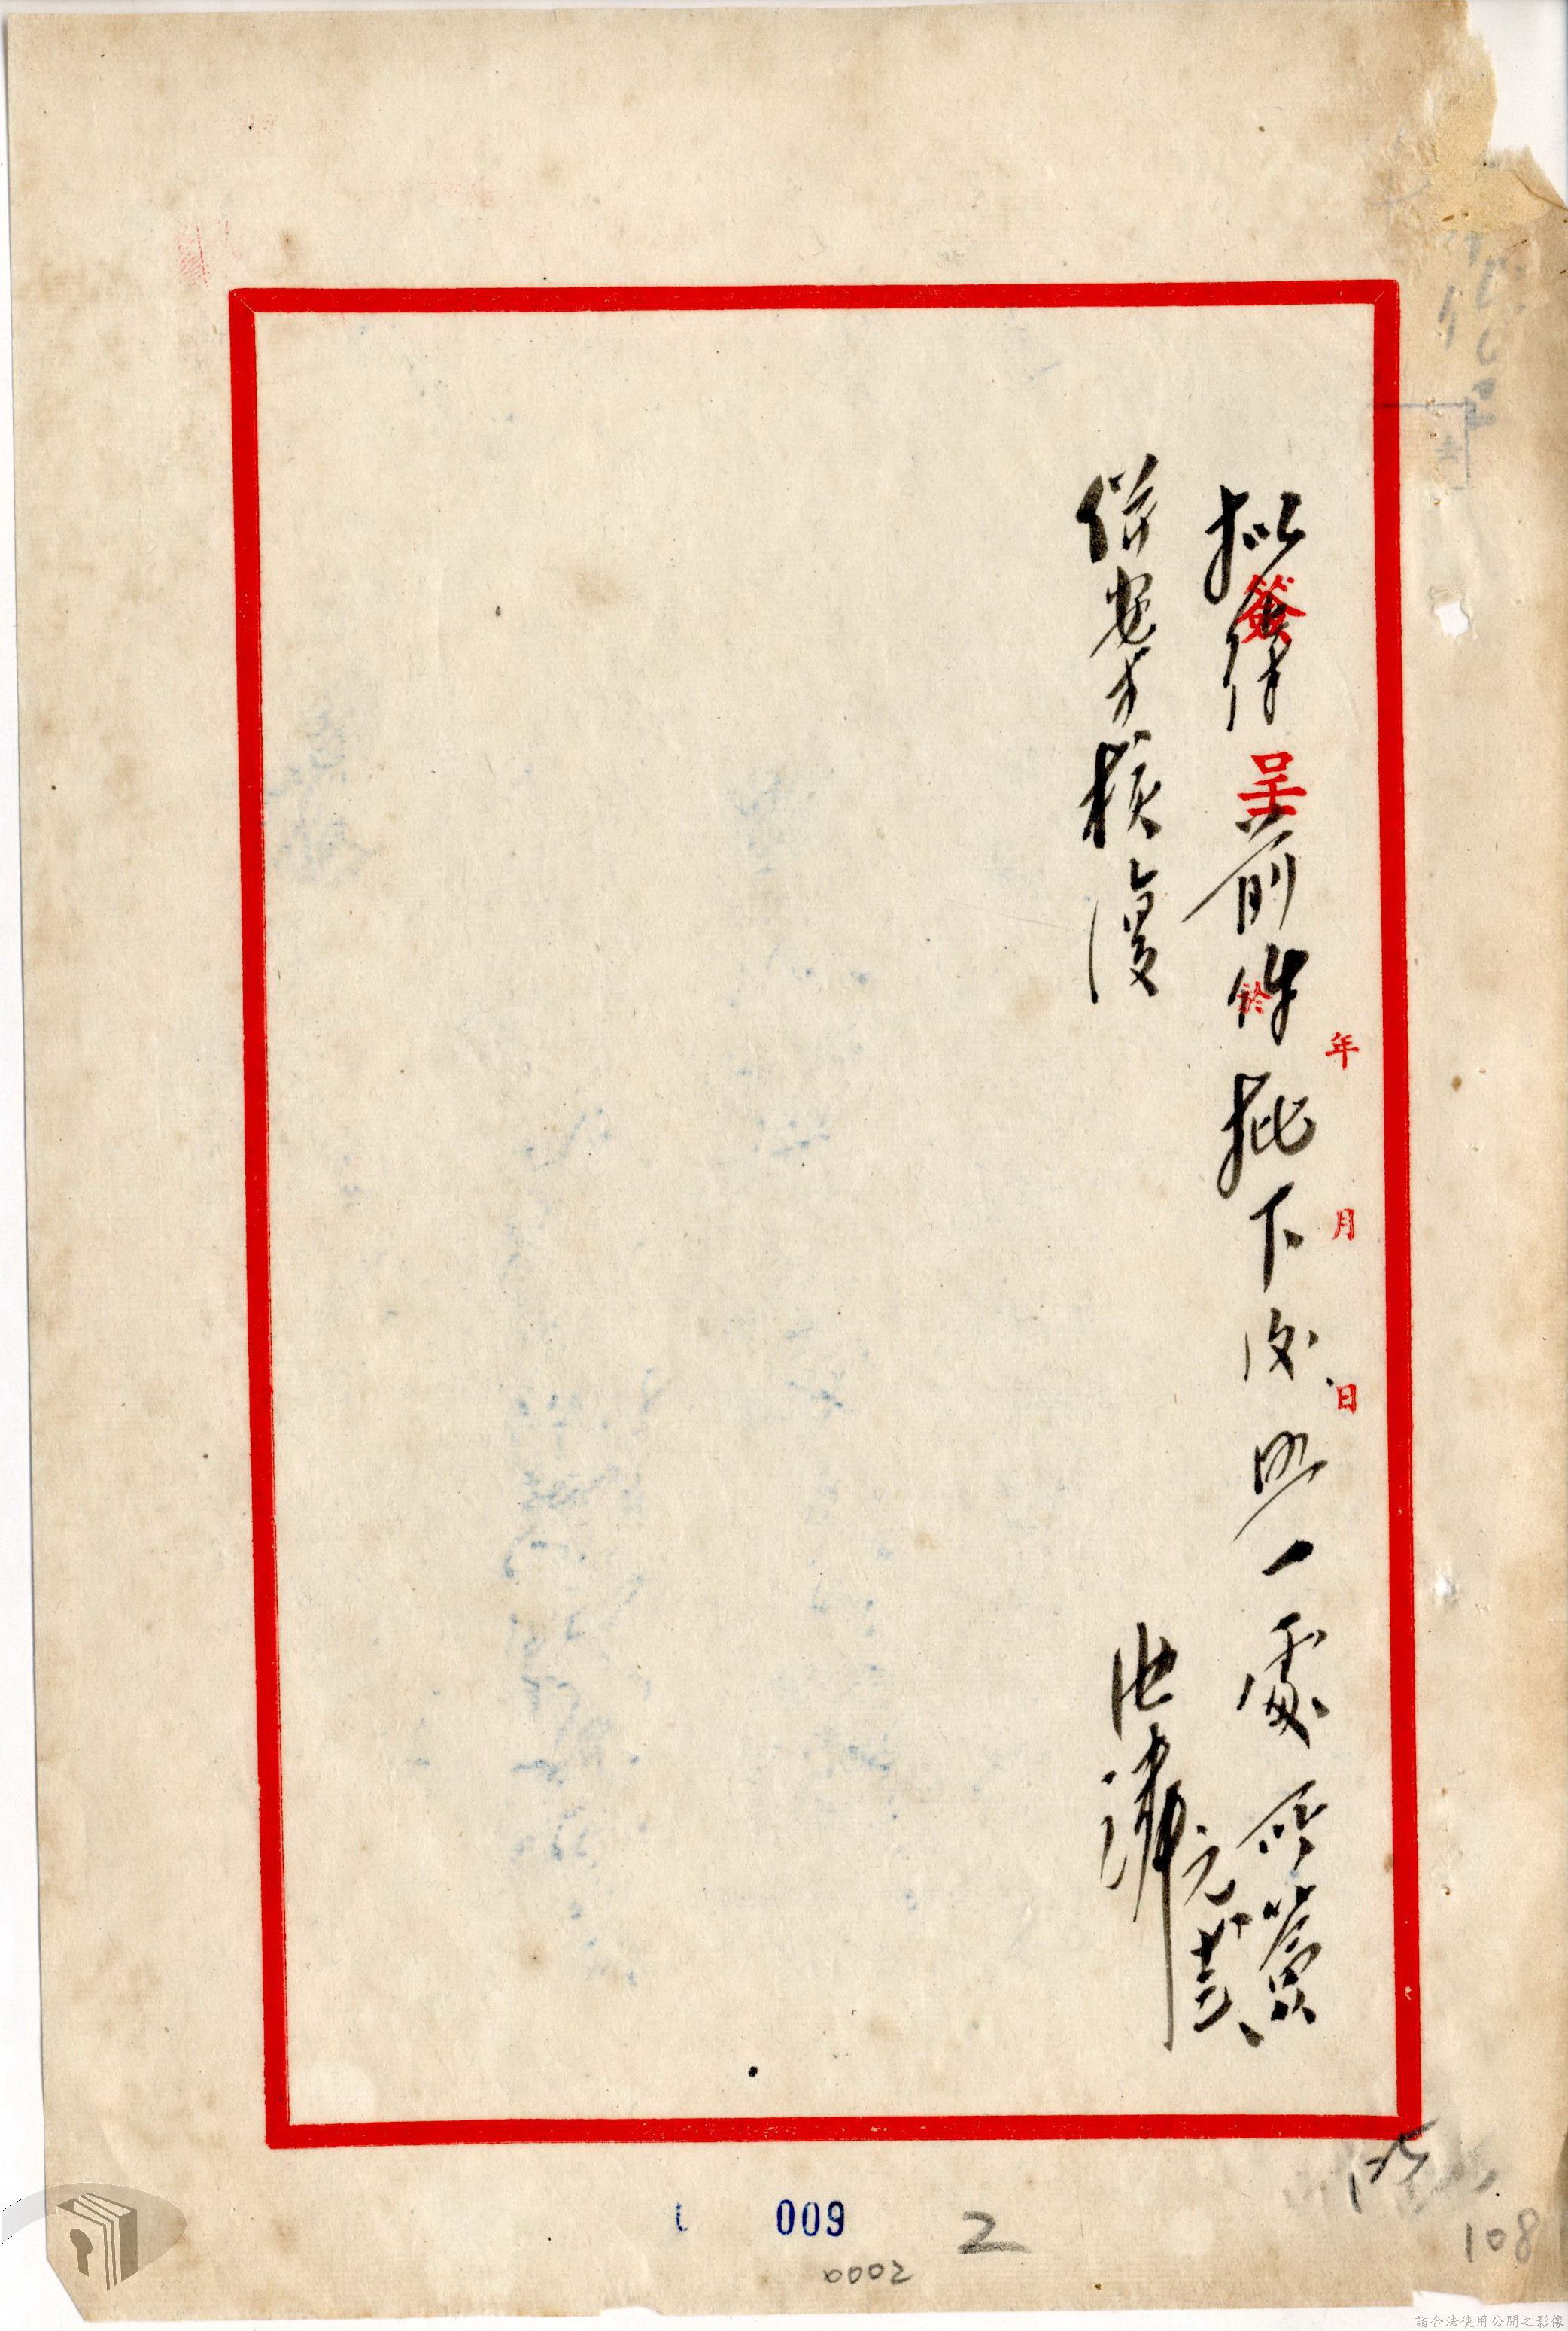 年 月 日
簽呈 於
擬俟前件批下後照一處所簽
併案核復
009
0002
2
108
請合法使用公開之影像